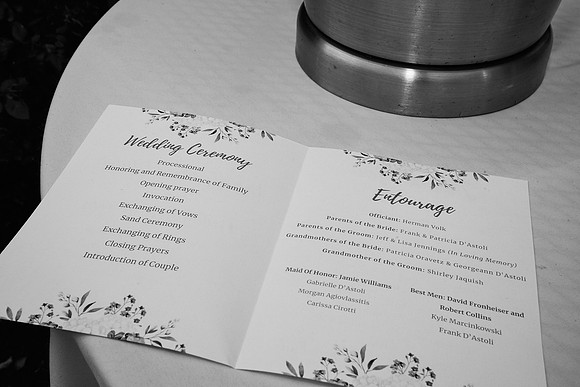 Wedding Ceremony
Processional
Honoring and Remembrance of Family
Opening prayer
Invocation
Exchanging of Vows
Sand Ceremony
Exchanging of Rings
Closing Prayers
Introduction of Couple
Entourage
Officiant: Herman Volk
Parents of the Bride: Frank & Patricia D'Astoli
Parents of the Groom: Jeff & Lisa Jennings (In Loving Memory)
Grandmothers of the Bride: Patricia Oravetz & Georgeann D'Astoli
Grandmother of the Groom: Shirley Jaquish
Maid Of Honor: Jamie Williams
Gabrielle D'Astoli
Morgan Agiovlassitis
Carissa Cirotti
Best Men: David Fronheiser and
Robert Collins
Kyle Marcinkowski
Frank D'Astoli